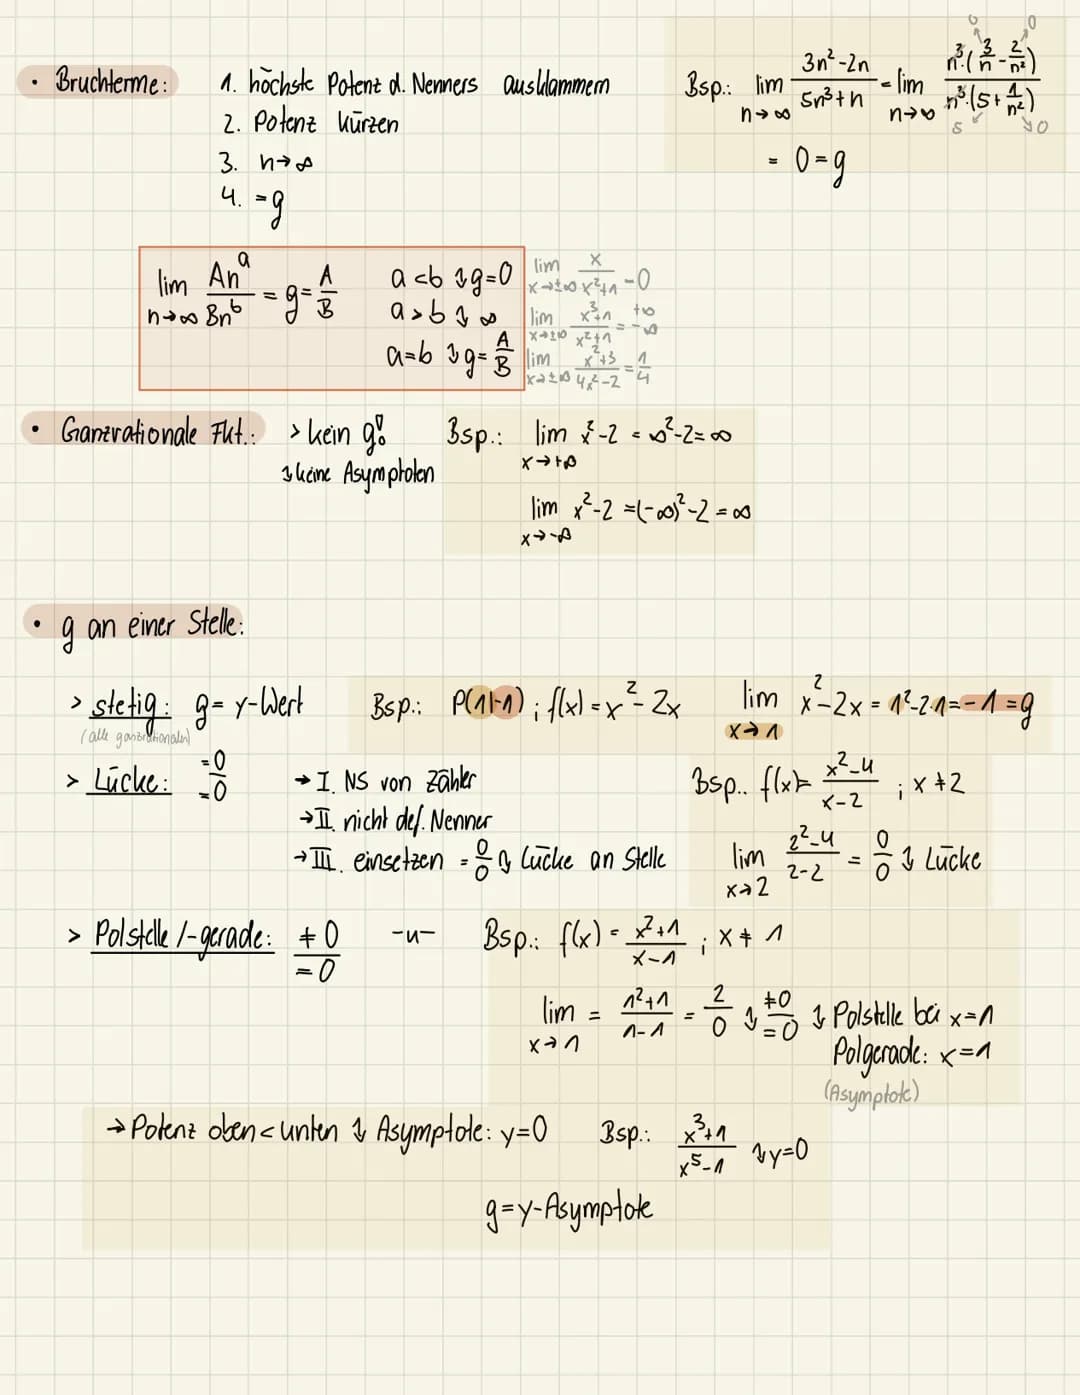 • Bruchterme: 1. höchste Potenz d. Nenners ausklammern
2. Potenz kürzen
3. n→∞
4. =g
Bsp.: lim n→∞ (3n²-2n)/(5n³+n) = lim n→∞ n³·(3/n - 2/n²)/n³·(5+1/n²)
0 0
5 0
= 0 = g
lim n→∞ Anᵃ/Bnᵇ = g = A/B
a<b ↯ g=0
a>b ↯ ∞
a=b ↯ g= A/B
lim x→±∞ x/(x²+1) = 0
lim x→±∞ (x³+1)/(x²+1) = +∞ -∞
lim x→±∞ (x²+3)/(4x²-2) = 1/4
• Ganzrationale Fkt.: > kein g!
↯ keine Asymptoten
Bsp.: lim x→+∞ x²-2 = ∞²-2=∞
lim x→-∞ x²-2 =(-∞)²-2=∞
• g an einer Stelle:
> stetig: g= y-Wert Bsp.: P(1|-1) ; f(x)=x²-2x lim x→1 x²-2x = 1²-2·1=-1=g
(alle ganzrationalen)
> Lücke: =0/=0 → I. NS von Zähler
→ II. nicht def. Nenner
→ III. einsetzen = 0/0 ↯ Lücke an Stelle
Bsp.: f(x)= (x²-4)/(x-2) ; x≠2
lim x→2 (2²-4)/(2-2) = 0/0 ↯ Lücke
> Polstelle/-gerade: ≠0/=0 -u- Bsp.: f(x) = (x²+1)/(x-1) ; x≠1
lim x→1 = (1²+1)/(1-1) = 2/0 ↯ ≠0/=0 ↯ Polstelle bei x=1
Polgerade: x=1
(Asymptote)
→ Potenz oben < unten ↯ Asymptote: y=0 Bsp.: (x³+1)/(x⁵-1) ↯ y=0
g=y-Asymptote